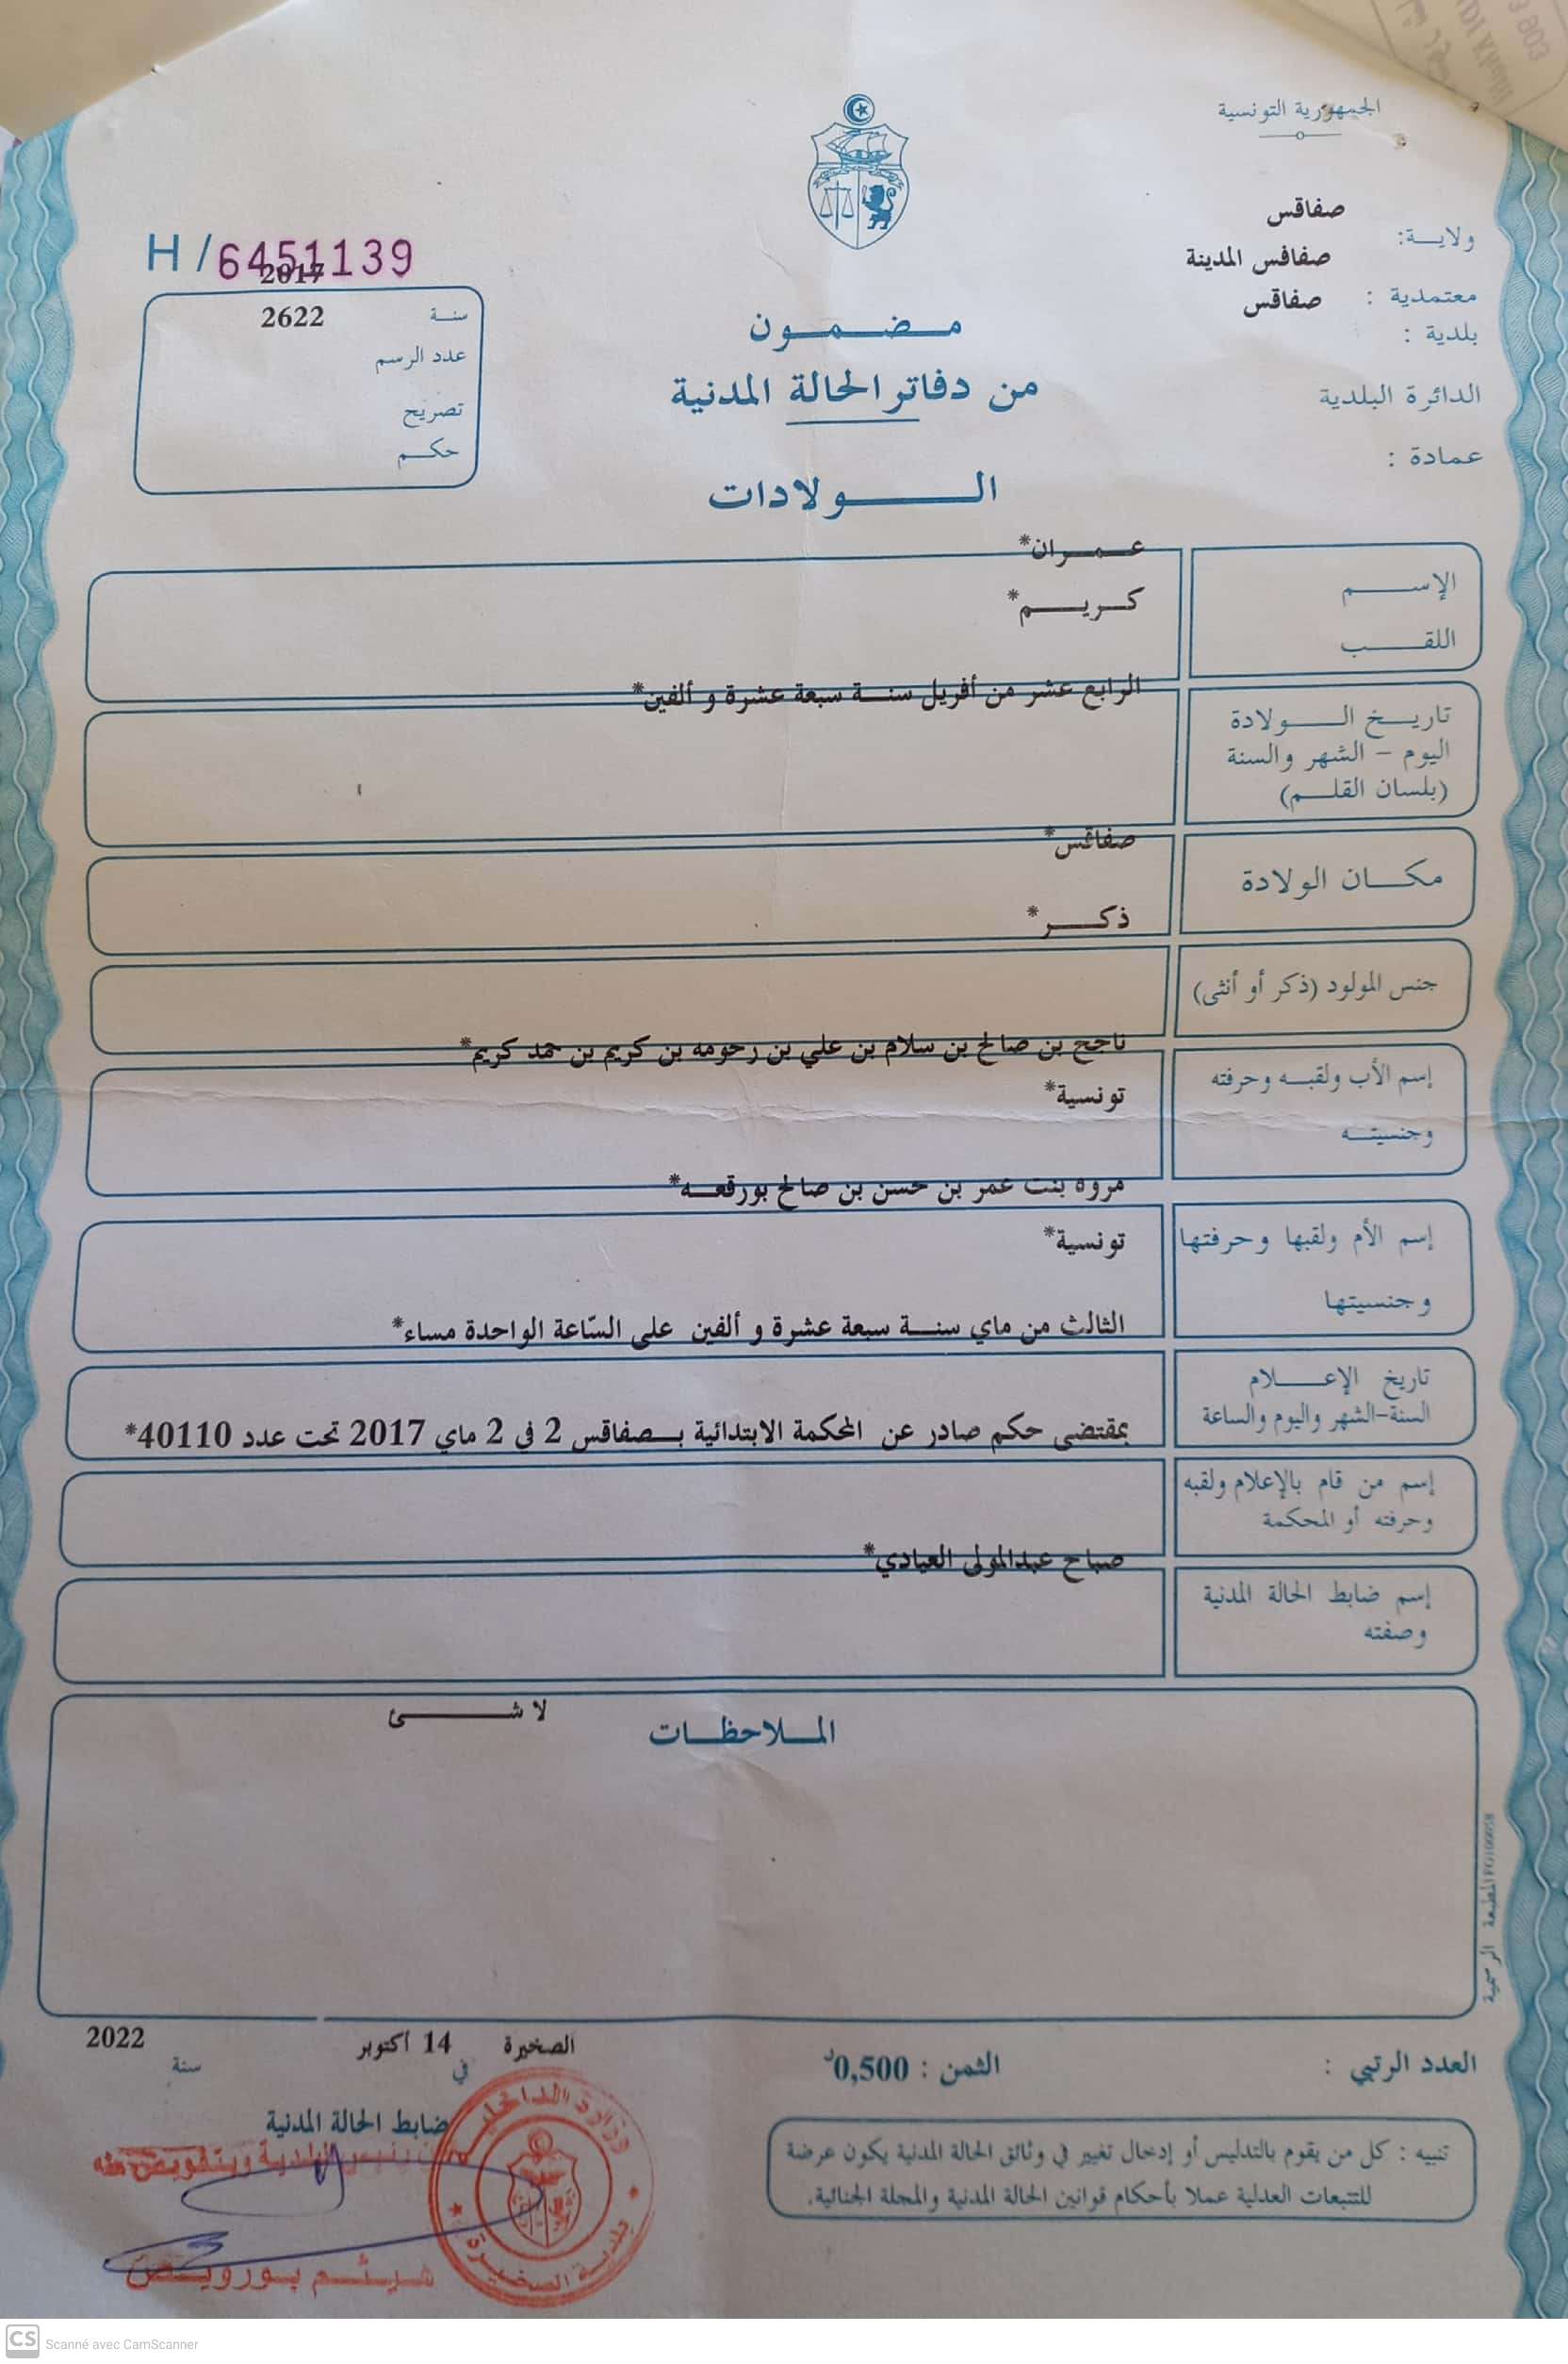 الجمهورية التونسية
ولاية: صفاقس
معتمدية : صفاقس المدينة
بلدية : صفاقس
الدائرة البلدية
عمادة :
H/6451139
سنة 2017
عدد الرسم 2622
تصريح
حكم
مضمون
من دفاتر الحالة المدنية
الولادات
الإسم عمران*
اللقب كريم*
تاريخ الولادة
اليوم - الشهر والسنة
(بلسان القلم)
الرابع عشر من أفريل سنة سبعة عشرة و ألفين*
مكان الولادة
صفاقس*
جنس المولود (ذكر أو أنثى)
ذكر*
إسم الأب ولقبه وحرفته
وجنسيته
ناجح بن صالح بن سلام بن علي بن رحومه بن كريم بن حمد كريم*
تونسية*
إسم الأم ولقبها وحرفتها
وجنسيتها
مروه بنت عمر بن حسن بن صالح بورقعه*
تونسية*
تاريخ الإعلام
السنة-الشهر واليوم والساعة
الثالث من ماي سنة سبعة عشرة و ألفين على السّاعة الواحدة مساء*
إسم من قام بالإعلام ولقبه
وحرفته أو المحكمة
بمقتضى حكم صادر عن المحكمة الابتدائية بصفاقس 2 في 2 ماي 2017 تحت عدد 40110*
إسم ضابط الحالة المدنية
وصفته
صباح عبدالمولى العيادي*
الملاحظات
لا شئ
المطبعة الرسمية
العدد الرتبي :
الثمن : 0,500د
تنبيه : كل من يقوم بالتدليس أو إدخال تغيير في وثائق الحالة المدنية يكون عرضة
للتتبعات العدلية عملا بأحكام قوانين الحالة المدنية والمجلة الجنائية.
الصخيرة في 14 أكتوبر سنة 2022
ضابط الحالة المدنية
عن رئيس البلدية وبتفويض منه
هيثم بورويص
وزارة الداخلية
بلدية الصخيرة
CS Scanné avec CamScanner